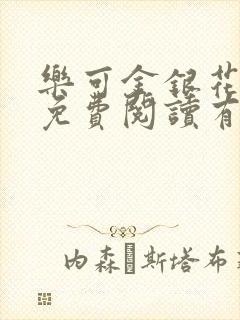 樂可金銀花
免費閱讀有
内森·斯塔布